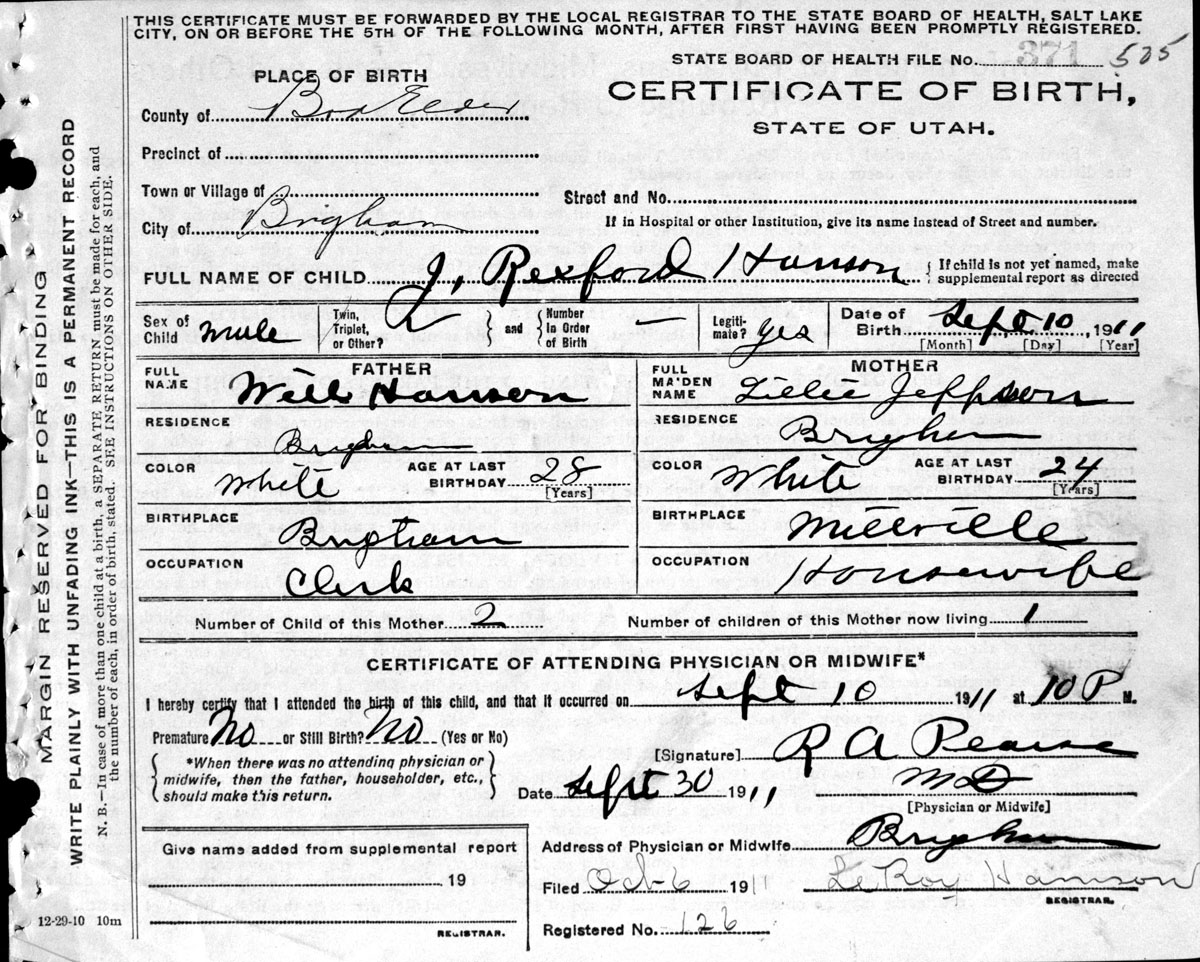 THIS CERTIFICATE MUST BE FORWARDED BY THE LOCAL REGISTRAR TO THE STATE BOARD OF HEALTH, SALT LAKE
CITY, ON OR BEFORE THE 5TH OF THE FOLLOWING MONTH, AFTER FIRST HAVING BEEN PROMPTLY REGISTERED.
STATE BOARD OF HEALTH FILE No. 371 505
PLACE OF BIRTH
CERTIFICATE OF BIRTH,
STATE OF UTAH.
County of Box Elder
Precinct of
Town or Village of
Street and No.
City of Brigham
If in Hospital or other Institution, give its name instead of Street and number.
FULL NAME OF CHILD J, Rexford Hanson { If child is not yet named, make
supplemental report as directed
Sex of Child male Twin, Triplet, or Other? { and { Number In Order of Birth — Legiti-mate? yes Date of Birth Sept 10, 1911
[Month] [Day] [Year]
FATHER
MOTHER
FULL NAME Will Hanson
FULL MAIDEN NAME Lillie Jeppson
RESIDENCE Brigham
RESIDENCE Brigham
COLOR White AGE AT LAST BIRTHDAY 28 [Years]
COLOR White AGE AT LAST BIRTHDAY 24 [Years]
BIRTHPLACE Brigham
BIRTHPLACE Millville
OCCUPATION Clerk
OCCUPATION Housewife
Number of Child of this Mother 2 Number of children of this Mother now living 1
CERTIFICATE OF ATTENDING PHYSICIAN OR MIDWIFE*
I hereby certify that I attended the birth of this child, and that it occurred on Sept 10 1911 at 10 P M.
Premature No or Still Birth? No (Yes or No)
[Signature] R A Pearse
*When there was no attending physician or
midwife, then the father, householder, etc.,
should make this return.
Date Sept 30 1911 MD
[Physician or Midwife]
Give name added from supplemental report
19
REGISTRAR.
Address of Physician or Midwife Brigham
Filed Oct 6 1911 LeRoy Hanson
REGISTRAR.
Registered No. 126
12-29-10 10m
MARGIN RESERVED FOR BINDING
WRITE PLAINLY WITH UNFADING INK—THIS IS A PERMANENT RECORD
N. B.—In case of more than one child at a birth, a SEPARATE RETURN must be made for each, and
the number of each, in order of birth, stated. SEE INSTRUCTIONS ON OTHER SIDE.